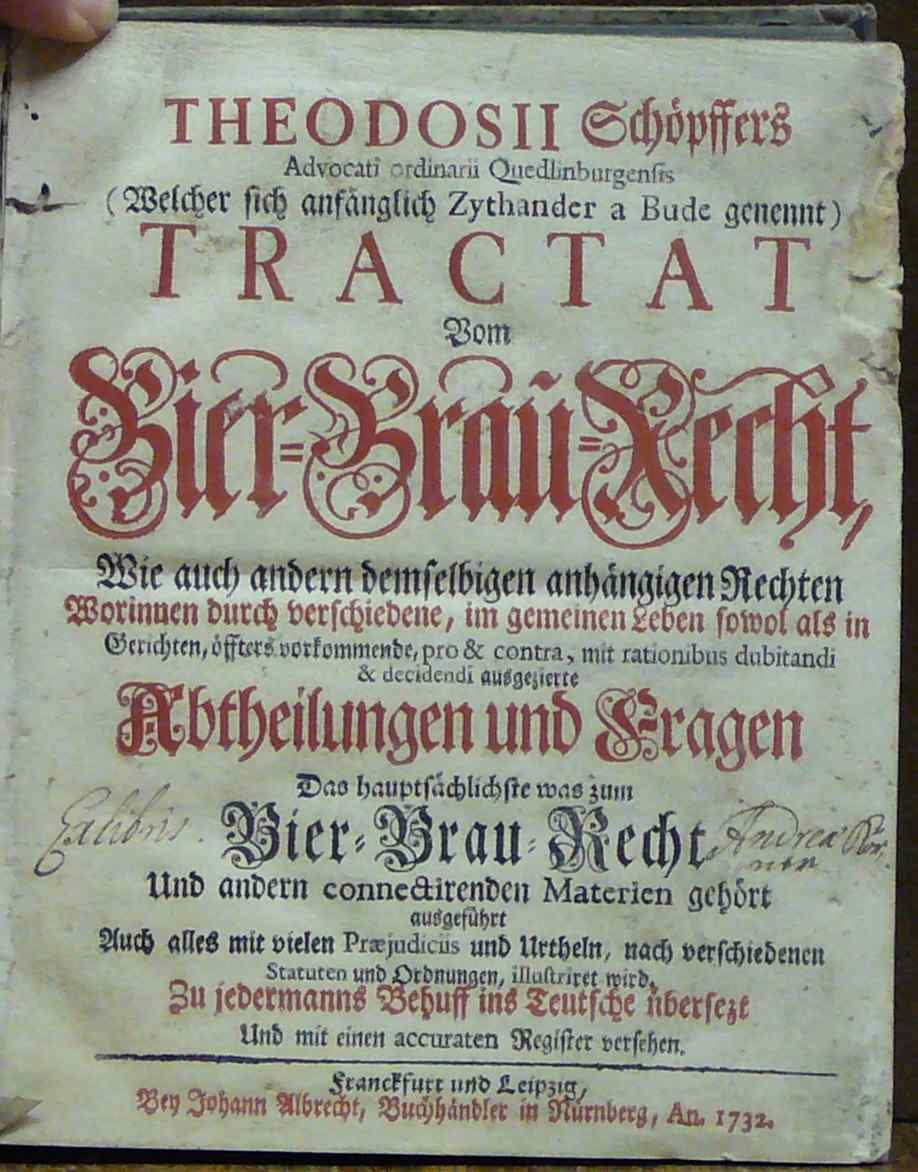 THEODOSII Schöpffers
Advocati ordinarii Quedlinburgensis
(Welcher sich anfänglich Zythander a Bude genennt)
TRACTAT
Vom
Bier-Brau-Recht,
Wie auch andern demselbigen anhängigen Rechten
Worinnen durch verschiedene, im gemeinen Leben sowol als in
Gerichten, öffters vorkommende, pro & contra, mit rationibus dubitandi
& decidendi ausgezierte
Abtheilungen und Fragen
Das hauptsächlichste was zum
Exlibris. Bier-Brau-Recht Andreæ
Und andern connectirenden Materien gehört
ausgeführt
Auch alles mit vielen Præjudiciis und Urtheln, nach verschiedenen
Statuten und Ordnungen, illustriret wird,
Zu jedermanns Behuff ins Teutsche übersezt
Und mit einen accuraten Register versehen.
Franckfurt und Leipzig,
Bey Johann Albrecht, Buchhändler in Nürnberg, An. 1732.